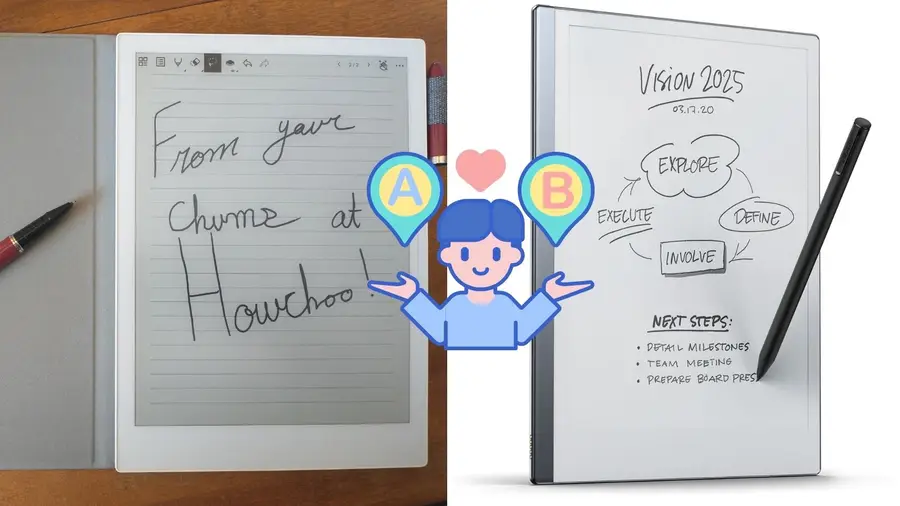 From your
chumz at
Howchoo!
A
B
VISION 2025
03.17.20
EXPLORE
EXECUTE
DEFINE
INVOLVE
NEXT STEPS:
• DETAIL MILESTONES
• TEAM MEETING
• PREPARE BOARD PRES